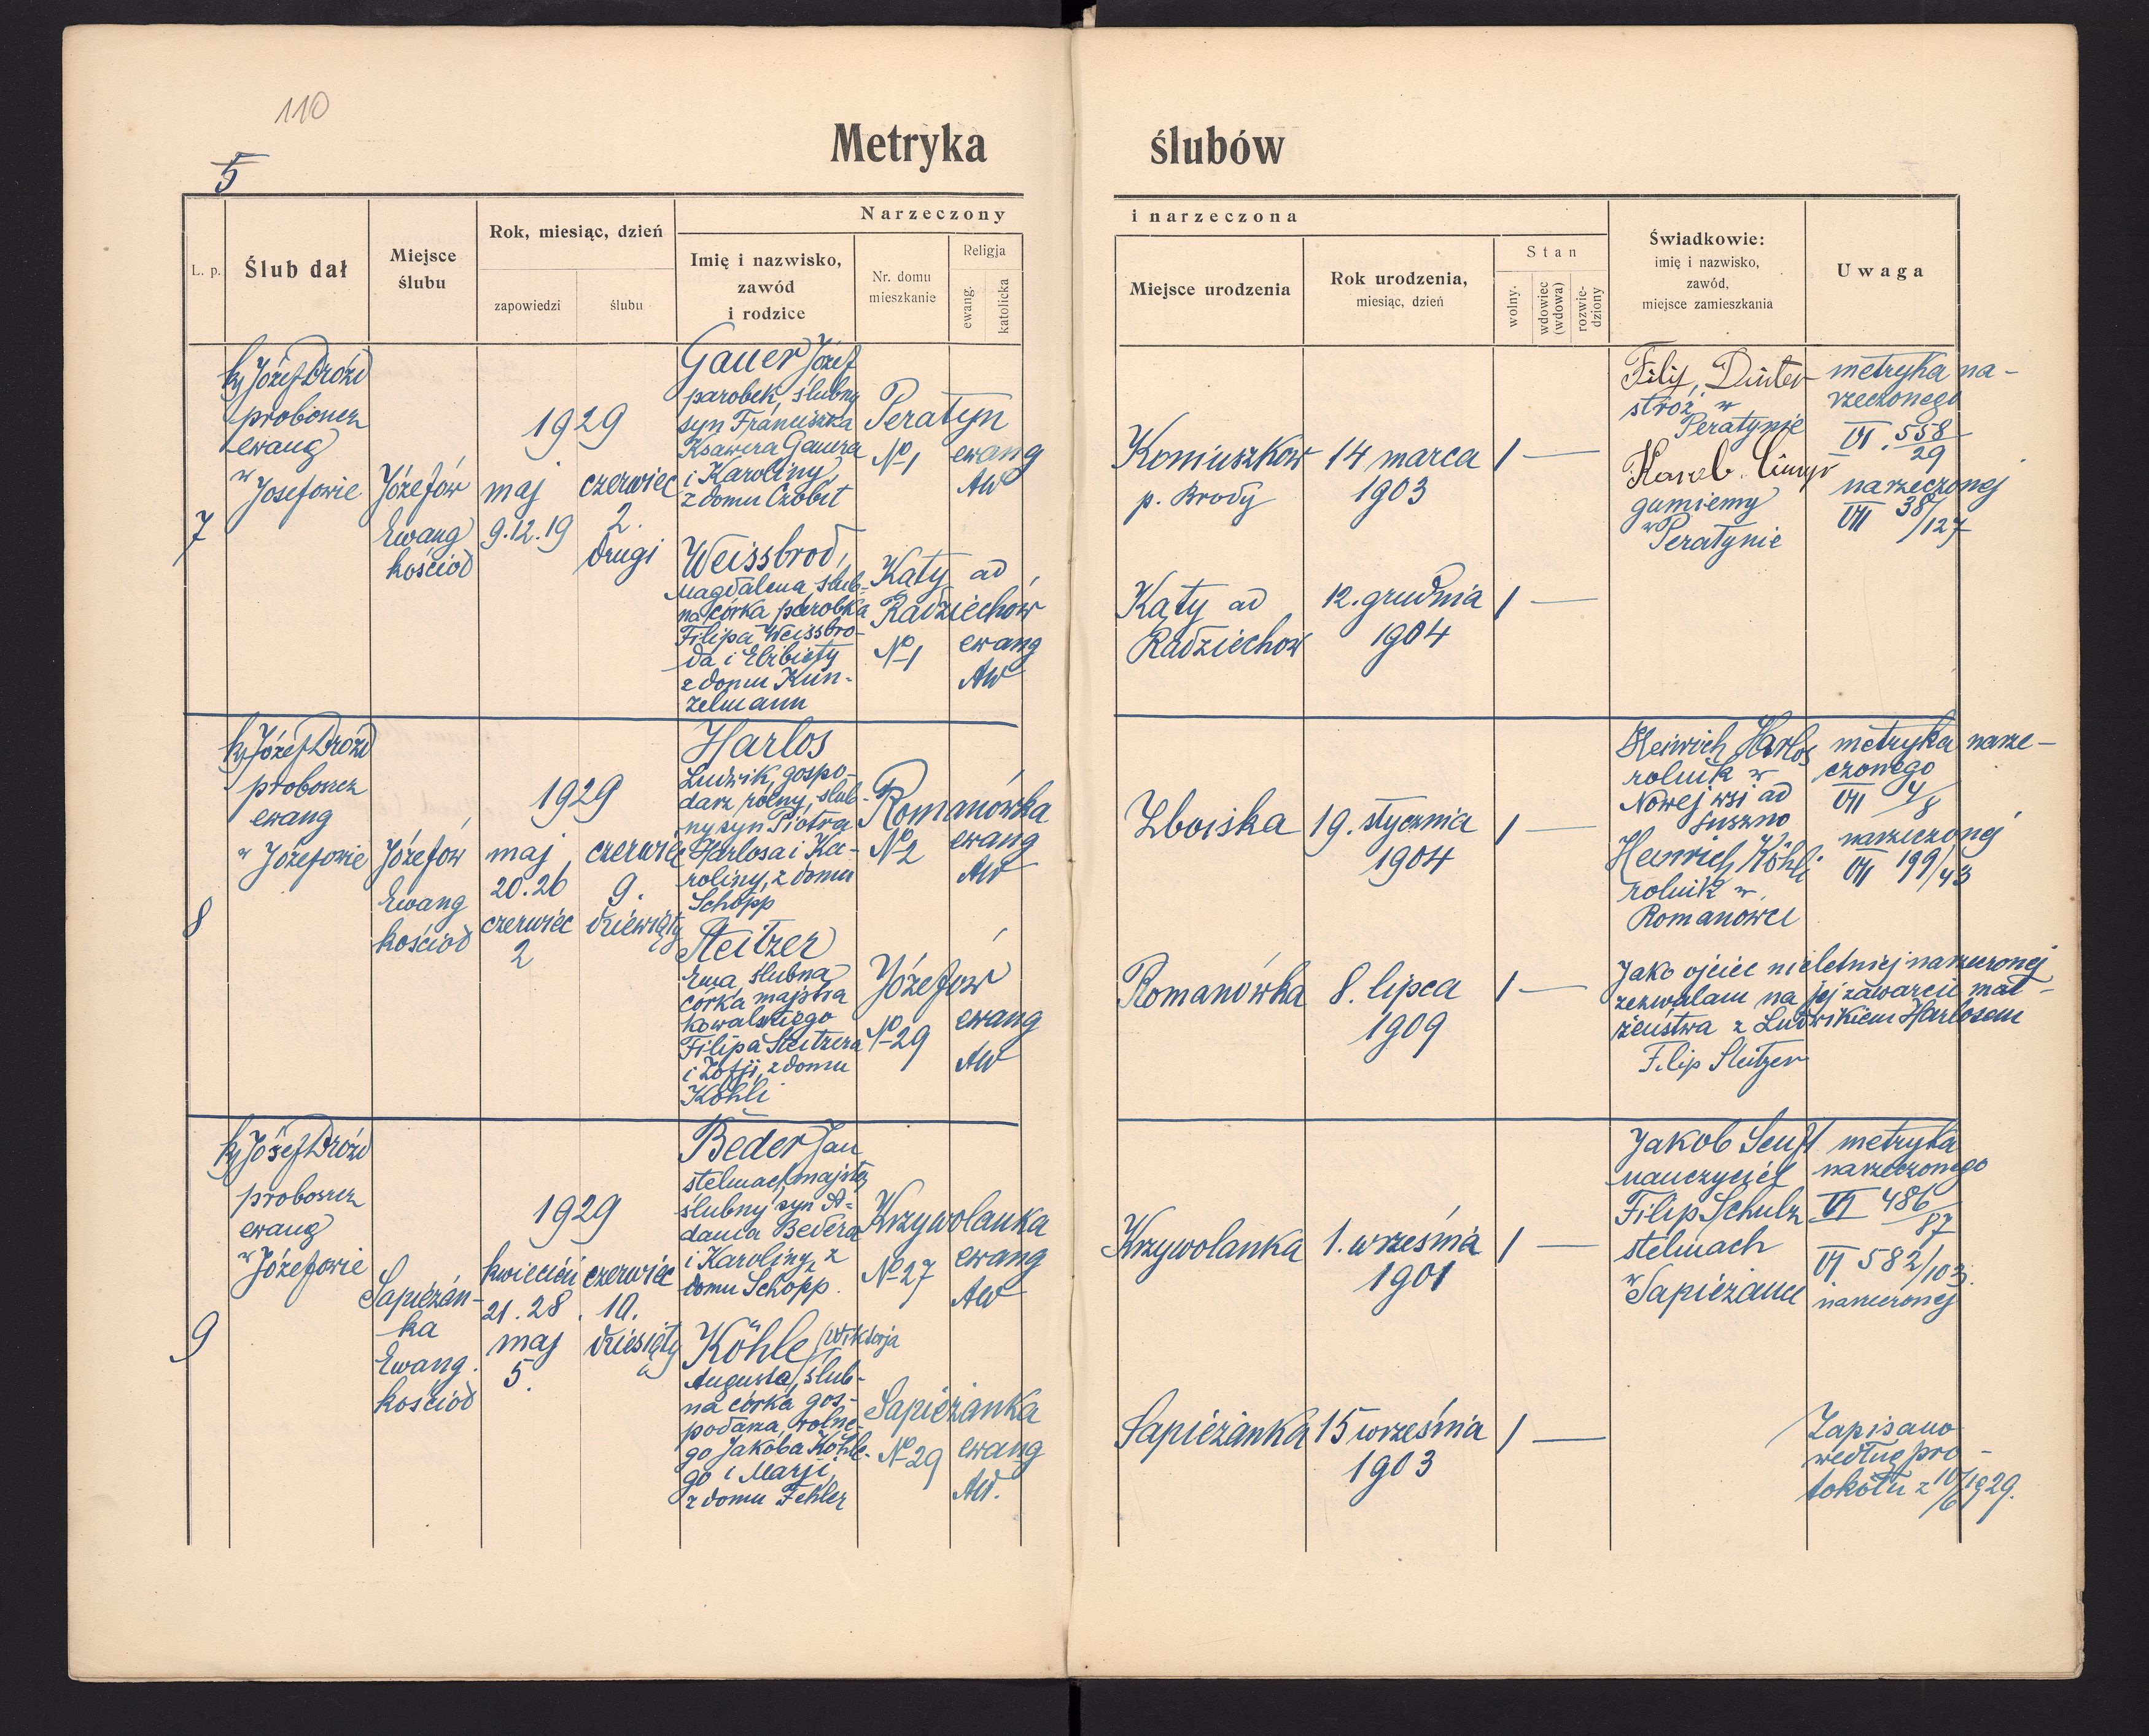 110
5
Metryka ślubów
L. p.
Ślub dał
Miejsce
ślubu
Rok, miesiąc, dzień
zapowiedzi
ślubu
Narzeczony
Imię i nazwisko,
zawód
i rodzice
Nr. domu
mieszkanie
Religja
ewang.
katolicka
i narzeczona
Miejsce urodzenia
Rok urodzenia,
miesiąc, dzień
Stan
wolny.
wdowiec
(wdowa)
rozwie-
dziony
Świadkowie:
imię i nazwisko,
zawód,
miejsce zamieszkania
Uwaga
7
ks Józef Drózd
proboszcz
ewang
w Josefowie
Józefów
Ewang
kościoł
1929
maj
9.12.19
czerwiec
2.
drugi
Gauer Józef
parobek, ślubny
syn Franciszka
Ksawera Gauera
i Karoliny
z domu Czobit
Peratyn
№1
ewang
AW
Koniuszkow
p. Brody
14 marca
1903
1 —
Weissbrod,
Magdalena, ślub-
na córka parobka
Filipa Weissbro-
da i Elżbiety
z domu Kun-
zelmann
Kąty ad
Radziechów
№1
ewang
AW
Kąty ad
Radziechow
12. grudnia
1904
1 —
Filip
stróż w
Peratynie
Karol
gumienny
w Peratynie
metryka na-
rzeczonego
VI. 558/29
narzeczonej
VII 38/127
8
ks Józef Drózd
proboszcz
ewang
w Józefowie
Józefów
Ewang
kościoł
1929
maj
20.26
czerwiec
2
czerwiec
9.
dziewiąty
Harlos
Ludwik, gospo-
darz rolny, ślub-
ny syn Piotra
Harlosa i Ka-
roliny, z domu
Schopp
Romanówka
№2
ewang
AW
Zboiska
19. stycznia
1904
1 —
Steitzer
Ewa, ślubna
córka majstra
kowalskiego
Filipa Steitzera
i Zofji, z domu
Köhli
Józefów
№29
ewang
AW
Romanówka
8. lipca
1909
1 —
Heinrich Harlos
rolnik w
Nowej wsi ad
Suszno
Heinrich Köhli
rolnik w
Romanówce
metryka narze-
czonego
VII 4/8
narzeczonej
VII 199/43
Jako ojciec nieletniej narzeczonej
zezwalam na jej zawarcie mał-
żeństwa z Ludwikiem Harlosem
Filip Steitzer
9
ks Józef Drózd
proboszcz
ewang
w Józefowie
Sapieżán-
ka
Ewang.
kościoł
1929
kwiecień
21. 28.
maj
5.
czerwiec
10.
dziesiąty
Beder Jan
stelmach, majster
ślubny syn A-
dama Bedera
i Karoliny, z
domu Schopp.
Krzywolanka
№27
ewang
AW
Krzywolanka
1. września
1901
1 —
Köhle (Wiktorja
Augusta), ślub-
na córka gos-
podarza, rolne-
go Jakóba Köhle-
go i Marji,
z domu Fehler
Sapieżanka
№29
ewang
AW.
Sapieżanka
15 września
1903
1 —
Jakob Senft
nauczyciel
Filip Schulz
stelmach
w Sapieżance
metryka
narzeczonego
VI 486/87
VI 582/103.
narzeczonej
Zapisano
według pro-
tokołu z 10/6 1929.